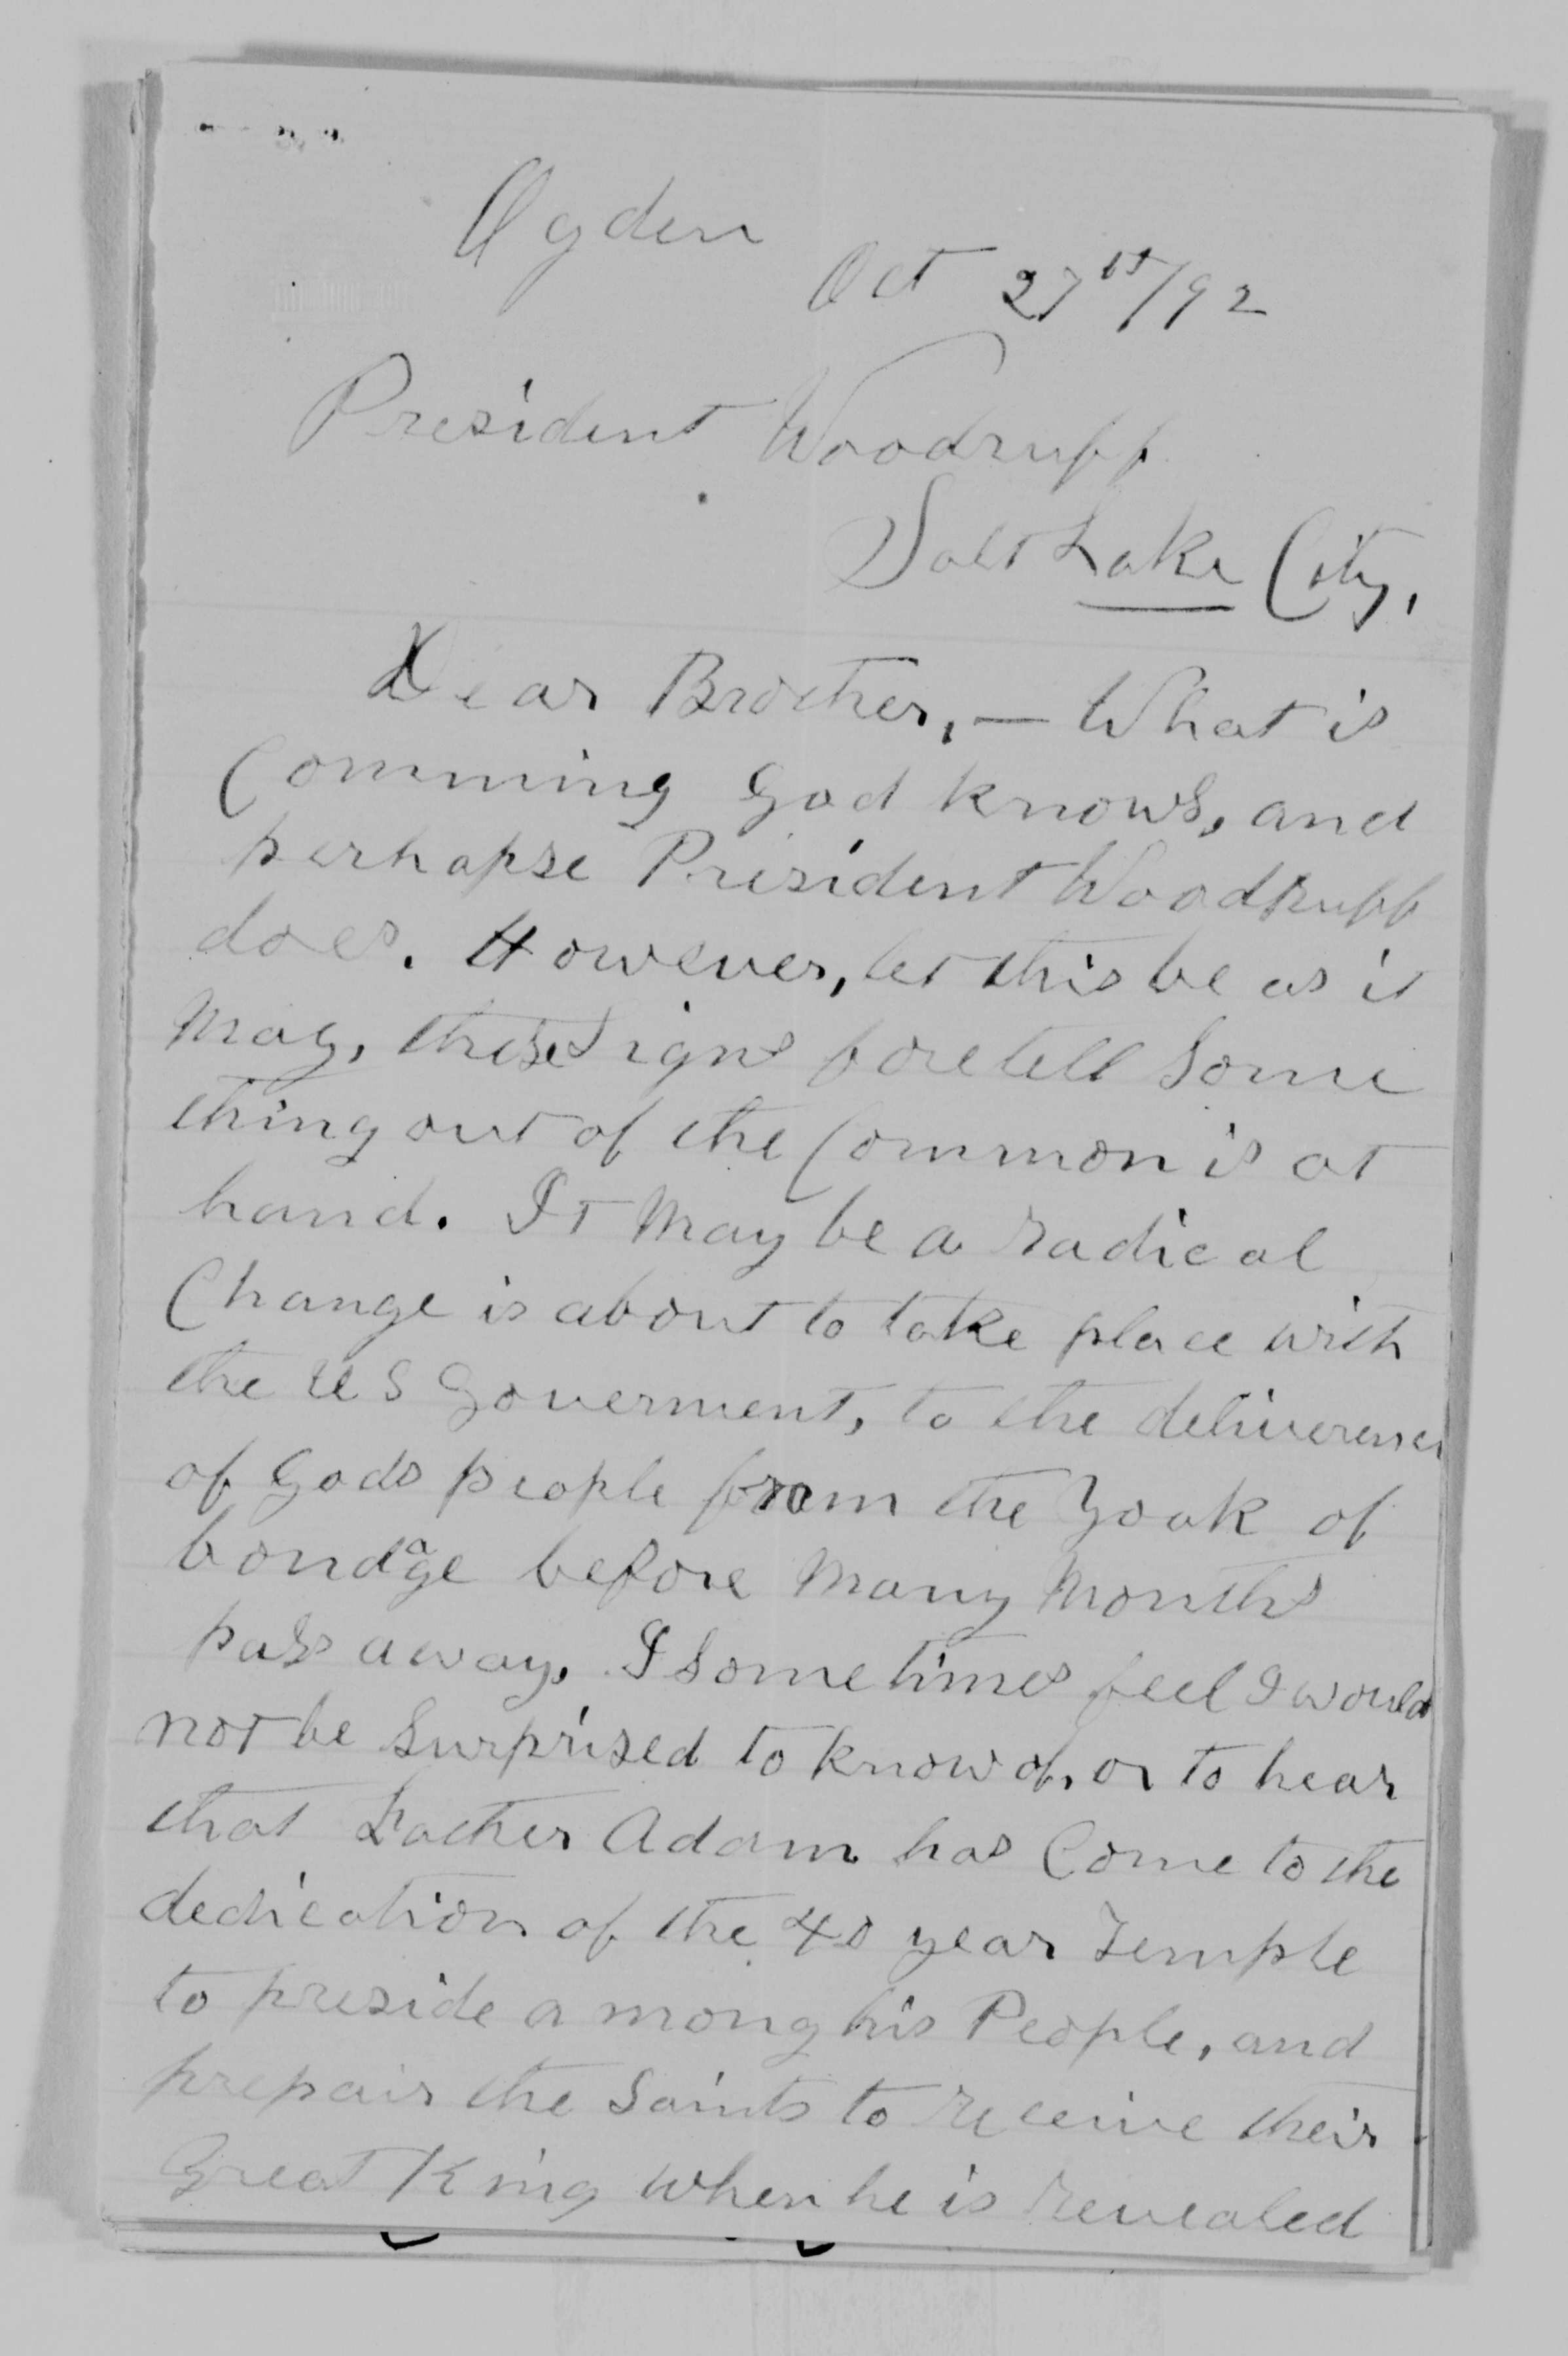 Ogden
Oct 27st/92
President Woodruff
Salt Lake City,
Dear Brother, — What is
Comming God knows, and
perhapse President Woodruff
does. However, let this be as it
May, these Signs foretell Some
thing out of the Common is at
hand. It May be a radical
Change is about to take place with
the U S Goverment, to the deliverence
of Gods people from the Yoak of
bondage before Many Months
pass away. I Sometimes feel I would
not be Surprised to know of, or to hear
that Father Adam has Come to the
dedication of the 40 year Temple
to preside among his People, and
prepair the Saints to receive their
Great King when he is revealed